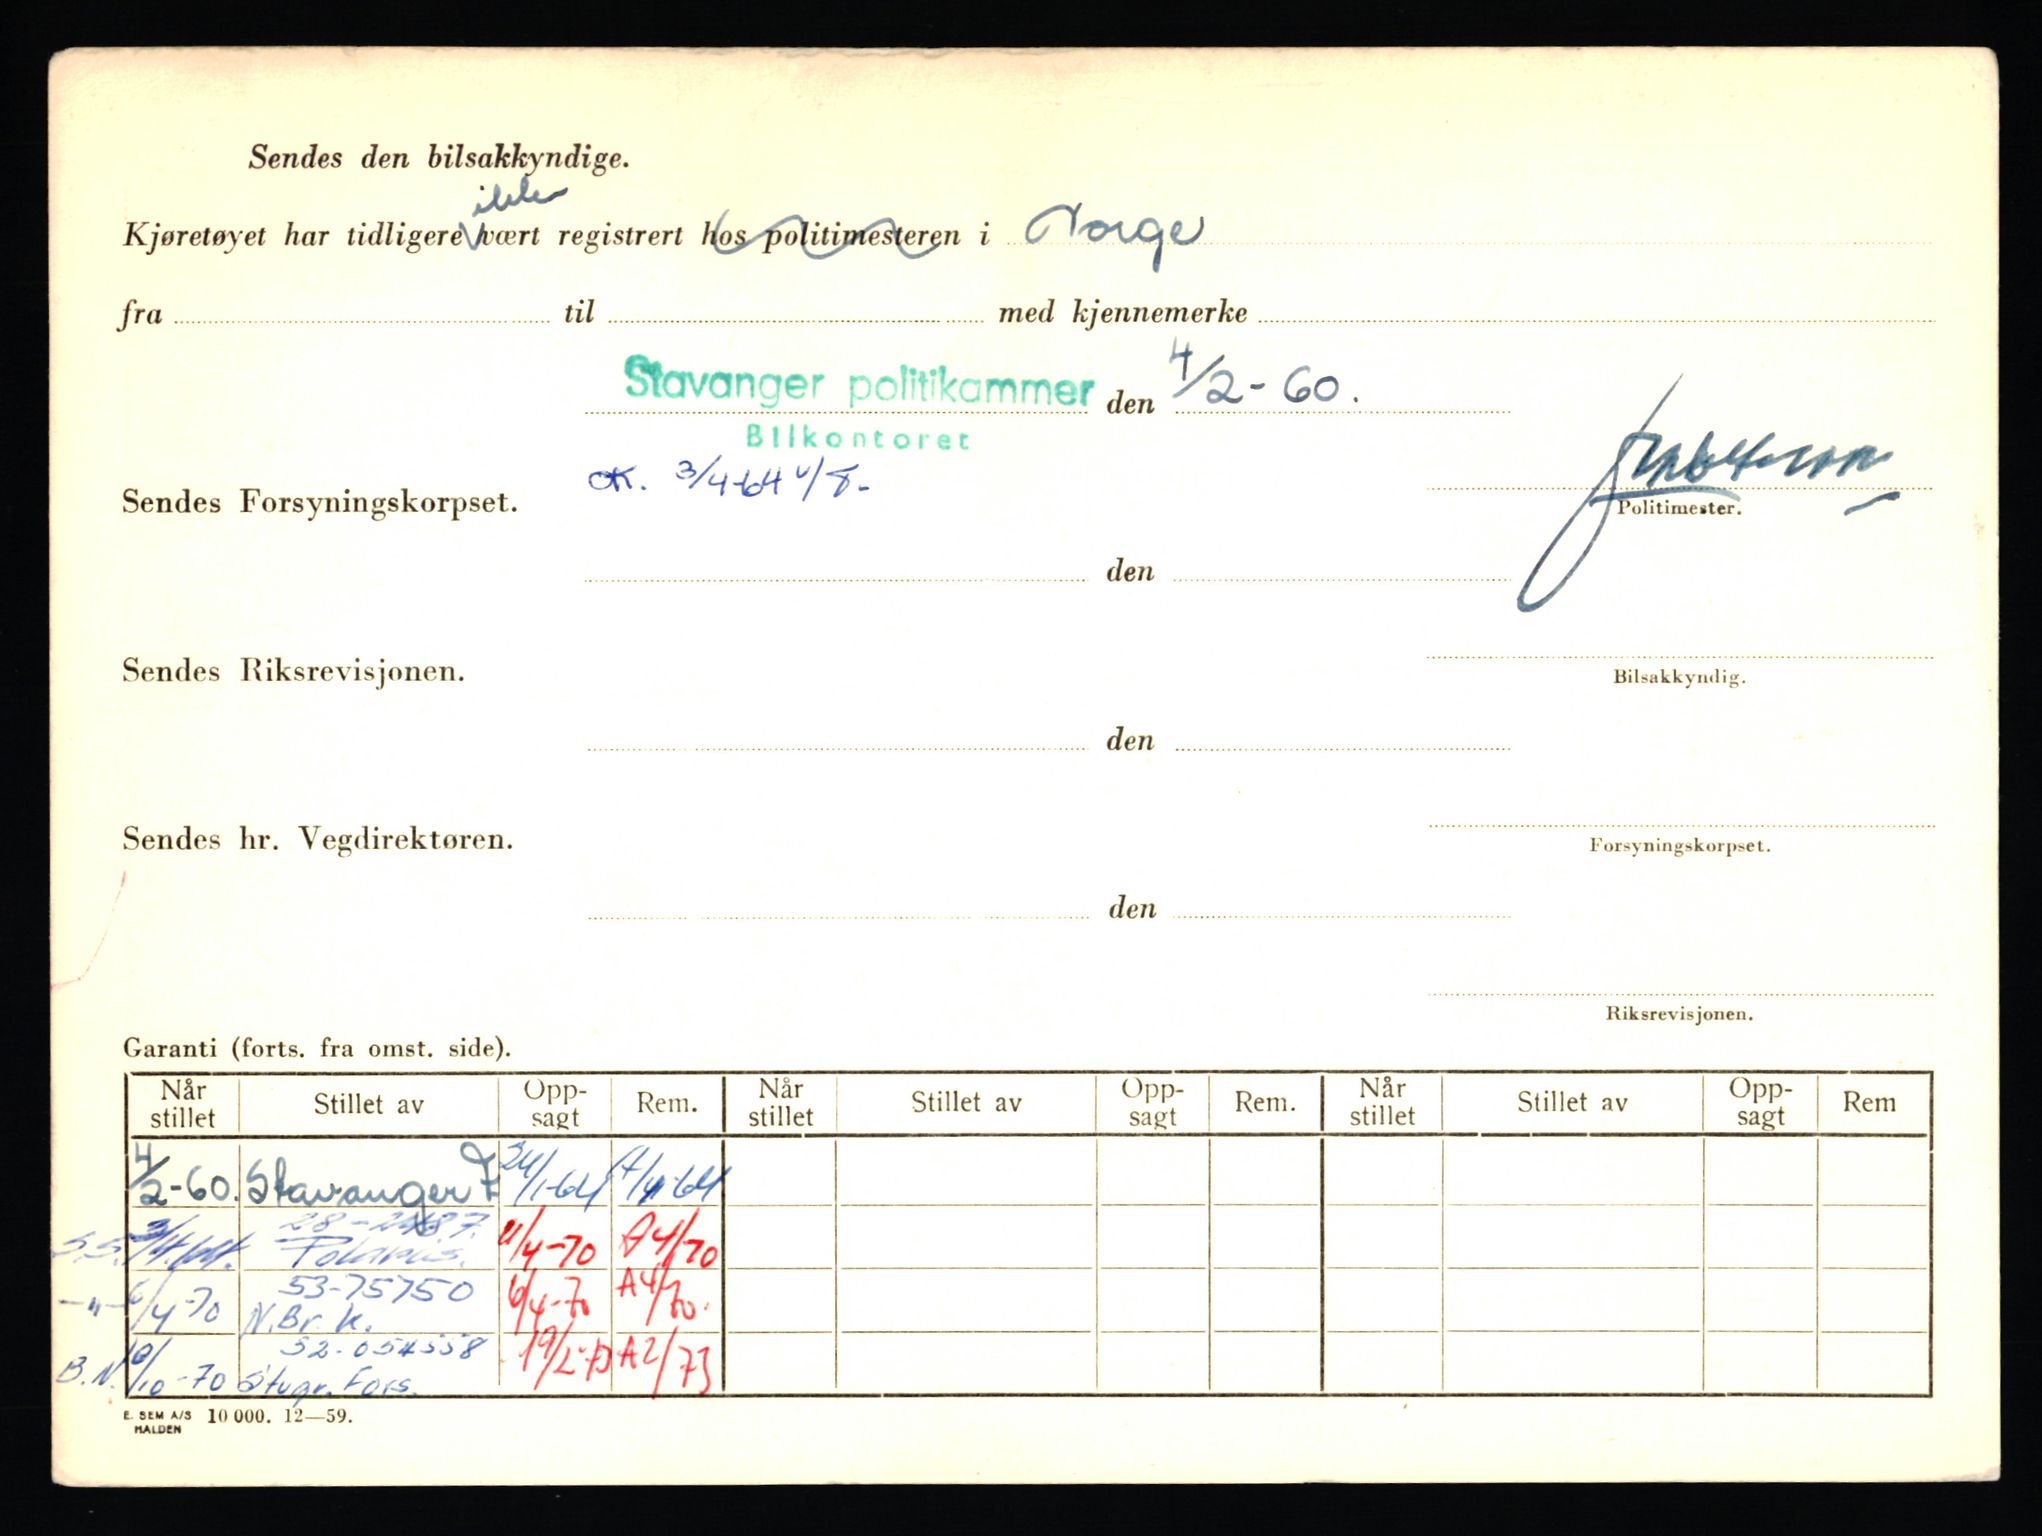 Sendes den bilsakkyndige.
ikke
Kjøretøyet har tidligere vært registrert hos politimesteren i Norge
fra til med kjennemerke
Stavanger politikammer den 4/2-60.
Bilkontoret
OK. 3/4-64
Sendes Forsyningskorpset.
Politimester.
den
Sendes Riksrevisjonen.
Bilsakkyndig.
den
Sendes hr. Vegdirektøren.
Forsyningskorpset.
den
Riksrevisjonen.
Garanti (forts. fra omst. side).
Når stillet Stillet av Opp-sagt Rem. Når stillet Stillet av Opp-sagt Rem. Når stillet Stillet av Opp-sagt Rem
4/2-60. Stavanger 24/1-64 4/4-64
S.S. 3/4-64. Polaris. 11/4-70 A4/70
53-75750
-"- 6/4-70 N.Br.k. 6/4-70 A4/70.
52-054558
B.N. 6/10-70 Stvgr. Fors. 19/2-73 A2/73
E. SEM A/S 10 000. 12—59.
HALDEN